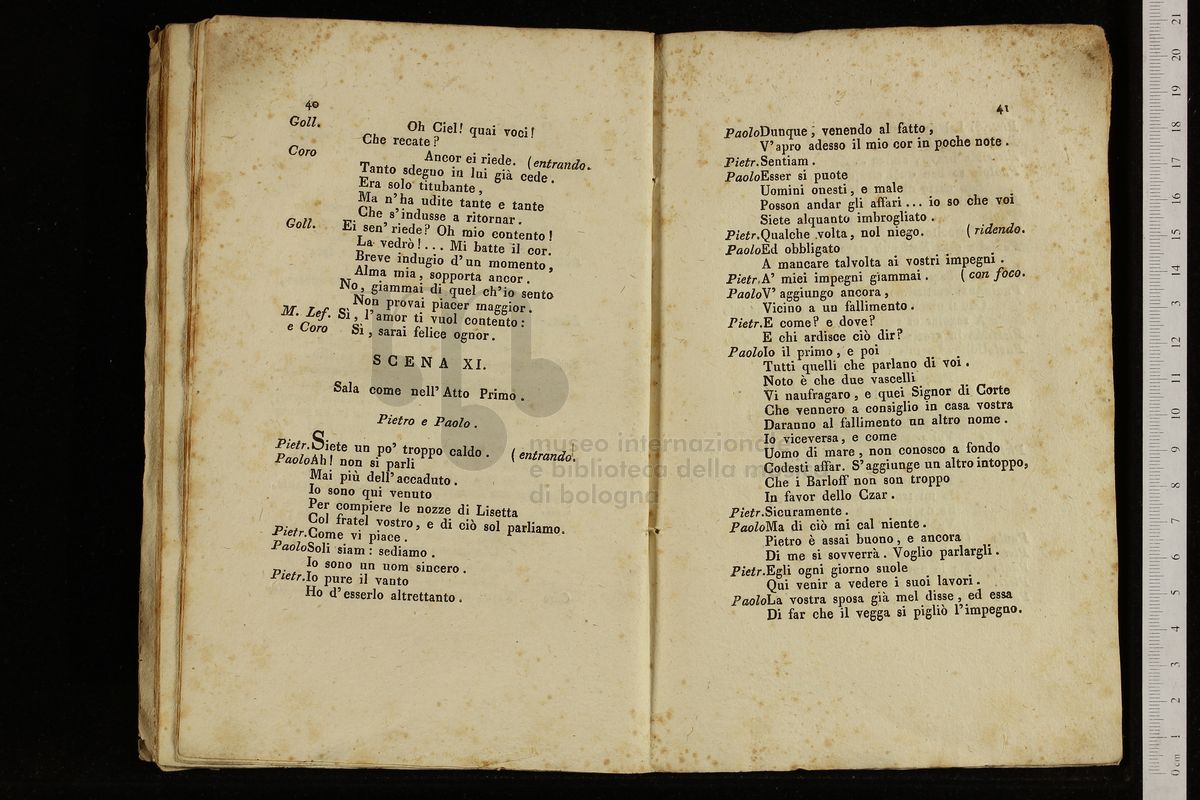 40
Goll. Oh Ciel! quai voci!
Che recate?
Coro Ancor ei riede. (entrando.
Tanto sdegno in lui già cede.
Era solo titubante,
Ma n'ha udite tante e tante
Che s'indusse a ritornar.
Goll. Ei sen' riede? Oh mio contento!
La vedrò!... Mi batte il cor.
Breve indugio d'un momento,
Alma mia, sopporta ancor.
No, giammai di quel ch'io sento
Non provai piacer maggior.
M. Lef. Sì, l'amor ti vuol contento:
e Coro Sì, sarai felice ognor.
SCENA XI.
Sala come nell'Atto Primo.
Pietro e Paolo.
Pietr. Siete un po' troppo caldo. (entrando.
Paolo Ah! non si parli
Mai più dell'accaduto.
Io sono qui venuto
Per compiere le nozze di Lisetta
Col fratel vostro, e di ciò sol parliamo.
Pietr. Come vi piace.
Paolo Soli siam: sediamo.
Io sono un uom sincero.
Pietr. Io pure il vanto
Ho d'esserlo altrettanto.
41
Paolo Dunque, venendo al fatto,
V'apro adesso il mio cor in poche note.
Pietr. Sentiam.
Paolo Esser si puote
Uomini onesti, e male
Posson andar gli affari... io so che voi
Siete alquanto imbrogliato.
Pietr. Qualche volta, nol niego. (ridendo.
Paolo Ed obbligato
A mancare talvolta ai vostri impegni.
Pietr. A' miei impegni giammai. (con foco.
Paolo V'aggiungo ancora,
Vicino a un fallimento.
Pietr. E come? e dove?
E chi ardisce ciò dir?
Paolo Io il primo, e poi
Tutti quelli che parlano di voi.
Noto è che due vascelli
Vi naufragaro, e quei Signor di Corte
Che vennero a consiglio in casa vostra
Daranno al fallimento un altro nome.
Io viceversa, e come
Uomo di mare, non conosco a fondo
Codesti affar. S'aggiunge un altro intoppo,
Che i Barloff non son troppo
In favor dello Czar.
Pietr. Sicuramente.
Paolo Ma di ciò mi cal niente.
Pietro è assai buono, e ancora
Di me si sovverrà. Voglio parlargli.
Pietr. Egli ogni giorno suole
Qui venir a vedere i suoi lavori.
Paolo La vostra sposa già mel disse, ed essa
Di far che il vegga si pigliò l'impegno.
museo internazionale
e biblioteca della musica
di bologna
0 cm 1 2 3 4 5 6 7 8 9 10 11 12 13 14 15 16 17 18 19 20 21